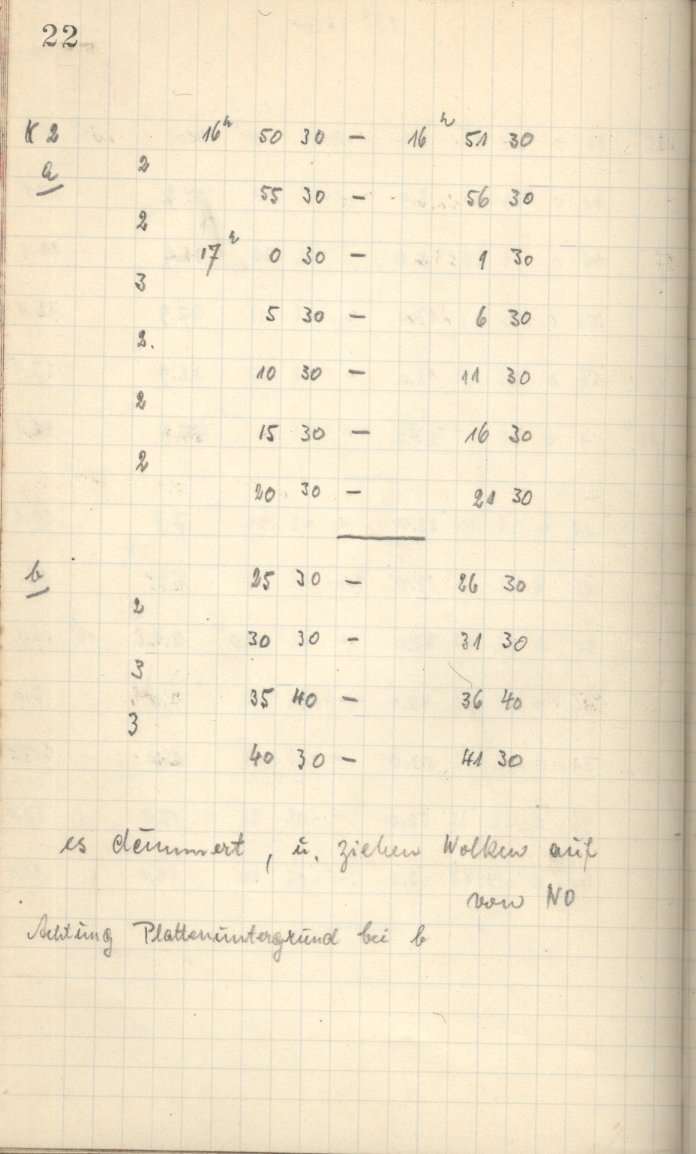 22
K 2 16h 50 30 – 16h 51 30
a 2
55 30 – 56 30
2
17h 0 30 – 1 30
3
5 30 – 6 30
2.
10 30 – 11 30
2
15 30 – 16 30
2
20 30 – 21 30
b 25 30 – 26 30
2
30 30 – 31 30
3
35 40 – 36 40
3
40 30 – 41 30
es dämmert, u. ziehen Wolken auf
von NO
Achtung Plattenuntergrund bei b